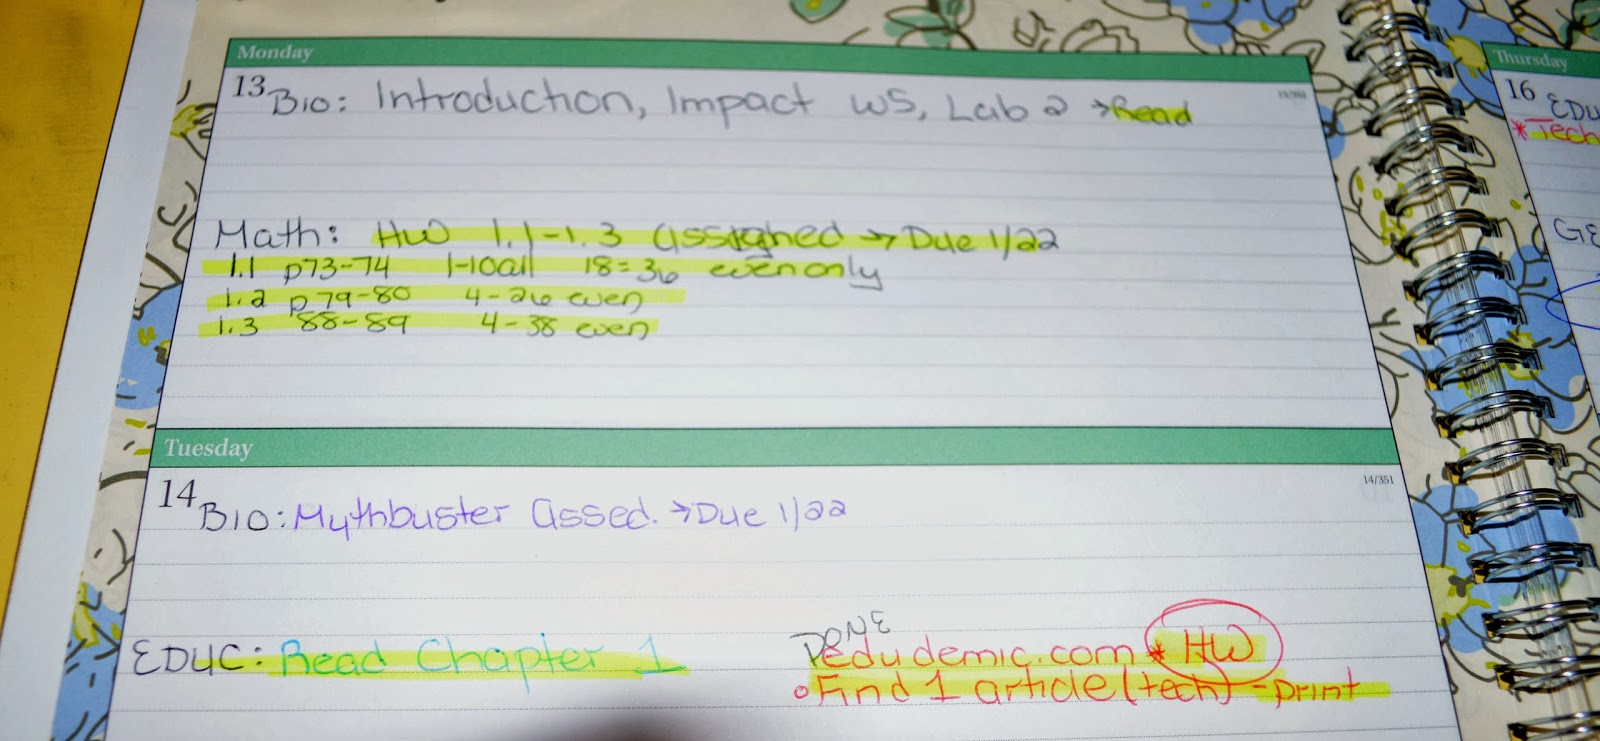 Monday
13 Bio: Introduction, Impact WS, Lab 2 → Read
Math: HW 1.1-1.3 assigned → Due 1/22
1.1 p73-74 1-10all 18=36 even only
1.2 p79-80 4-26 even
1.3 88-89 4-38 even
Tuesday
14 14/351
BIO: Mythbuster assed. → Due 1/22
DONE
EDUC: Read Chapter 1 edudemic.com * HW
Find 1 article (tech) - print
Thursday
16 EDU
* Tech
GE